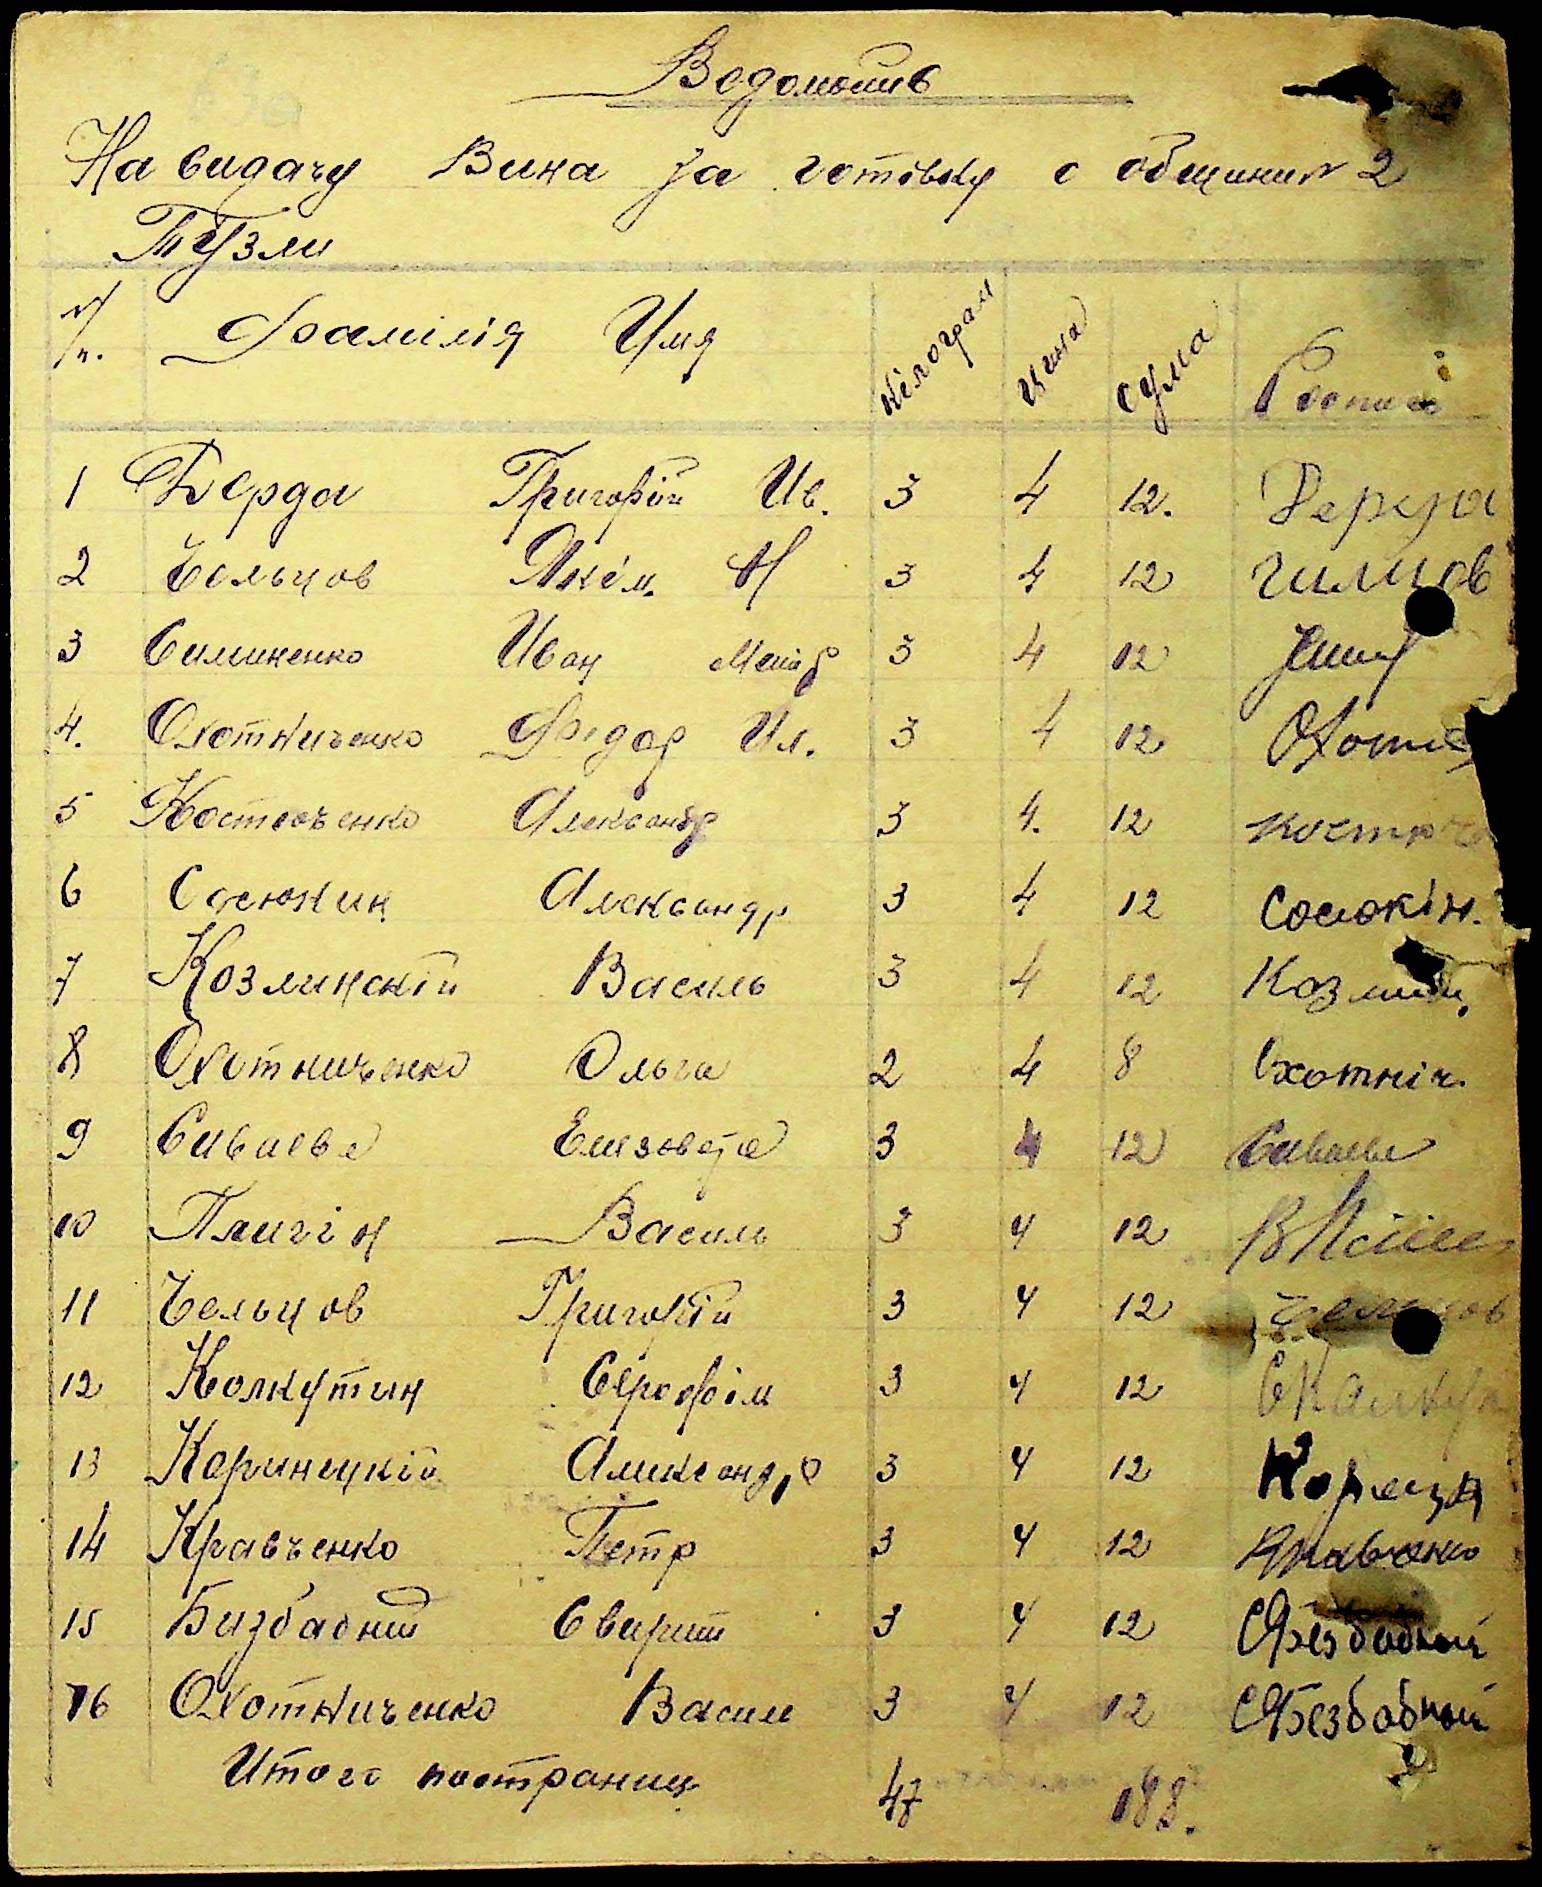 Ведомость
На видачу Вина за готовку с общини № 2
Тузли
№/п. Фамилія Имя Кілограм Цина Сума Роспись
1 Дерда Григорій Ив. 3 4 12. Дерда
2 Чельцов Якім. Н 3 4 12
3 Симиненко Иван 3 4 12
4. Охотниченко Федор Ил. 3 4 12 Охотнє
5 Костюченко Александр 3 4. 12
6 Сосюкин Александр 3 4 12 Сосюкін.
7 Козлинскій Василь 3 4 12
8 Охотниченко Ольга 2 4 8 Охотніч.
9 Сиваева Елизовета 3 4 12 Сиваева
10 Плигін Василь 3 4 12
11 Чельцов Григорій 3 4 12 Чельцов
12 Колкутин Серофім 3 4 12
13 Коринецкій Аликсандр 3 4 12
14 Кравченко Петр 3 4 12 Кравченко
15 Бизбабний Свирит 3 4 12 СЯБезбабный
16 Охотниченко Васили 3 4 12 СЯБезбабный
Итого построниц 47 188.